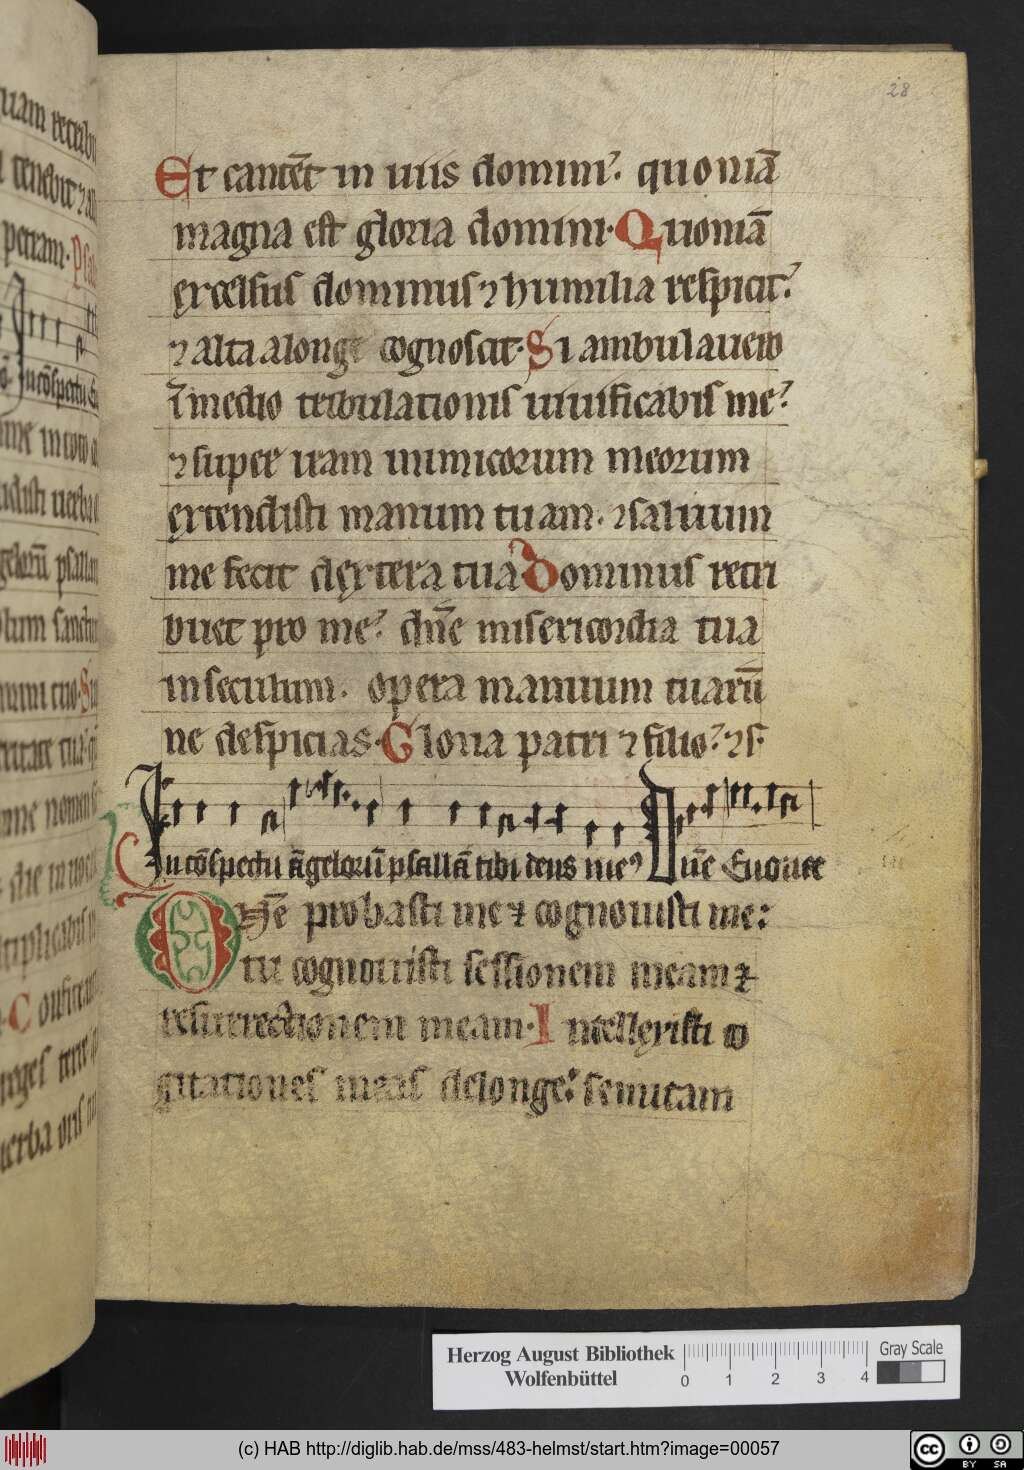 28
Et cantēt in uiis domini. quoniā
magna est gloria domini. Quoniā
excelsus dominus ⁊ humilia respicit.
⁊ alta a longe cognoscit. Si ambulauero
ī medio tribulationis uiuificabis me.
⁊ super iram inimicorum meorum
extendisti manum tuam. ⁊ saluum
me fecit dextera tua Dominus retri
buet pro me. dn̄e misericordia tua
in seculum. opera manuum tuarū
ne despicias. Gloria patri ⁊ filio. ⁊ s.
In cōspectu āgelorū psallā tibi deus me⁹ Dn̄e Euouae
Dn̄e probasti me ⁊ cognouisti me:
tu cognouisti sessionem meam ⁊
resurrectionem meam. Intellexisti co
gitationes meas de longe: semitam
Herzog August Bibliothek
Wolfenbüttel
0 1 2 3 4
Gray Scale
(c) HAB http://diglib.hab.de/mss/483-helmst/start.htm?image=00057
cc BY SA